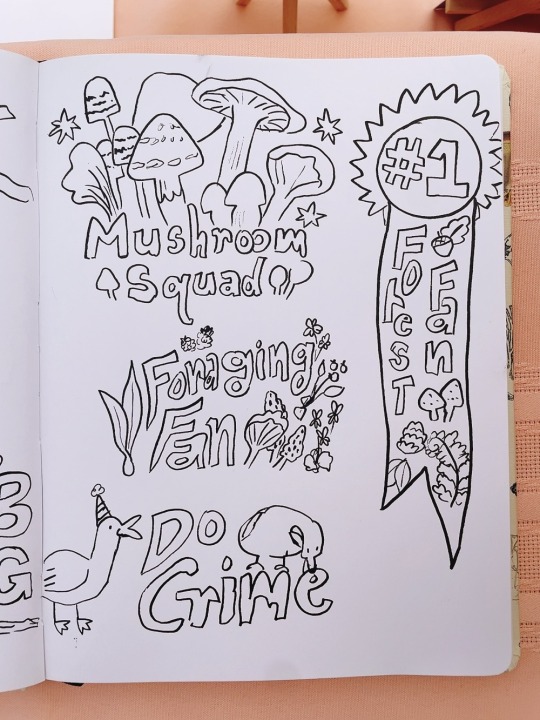 Mushroom
Squad
Foraging
Fan
Do
Crime
#1
Forest
Fan
B
G